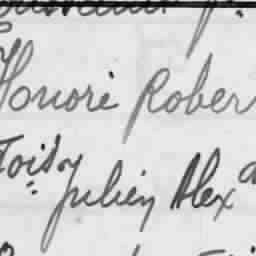 Honoré Rober
Toisy
Julien Alex a